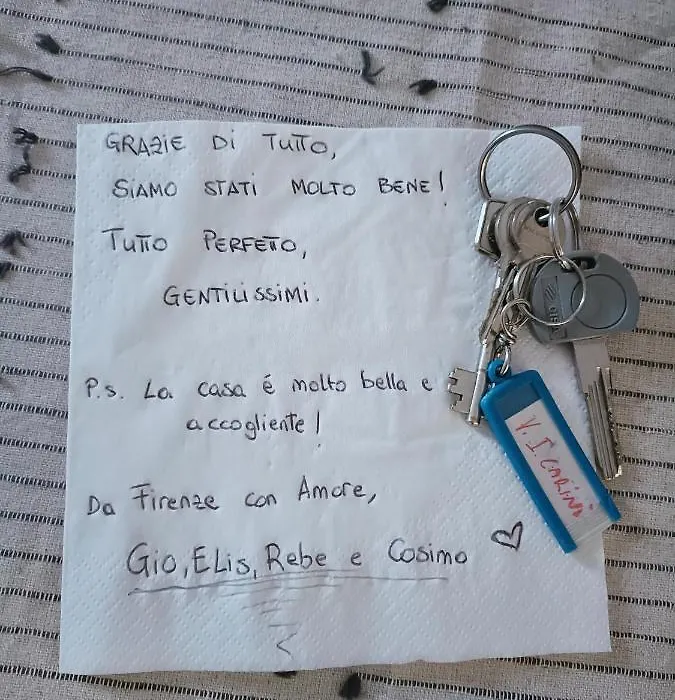 GRAZIE DI TUTTO,
SIAMO STATI MOLTO BENE!
TUTTO PERFETTO,
GENTILISSIMI.
P.s. La casa é molto bella e
accogliente!
Da Firenze con Amore,
Gio, ELis, Rebe e Cosimo
V. I. CARINI